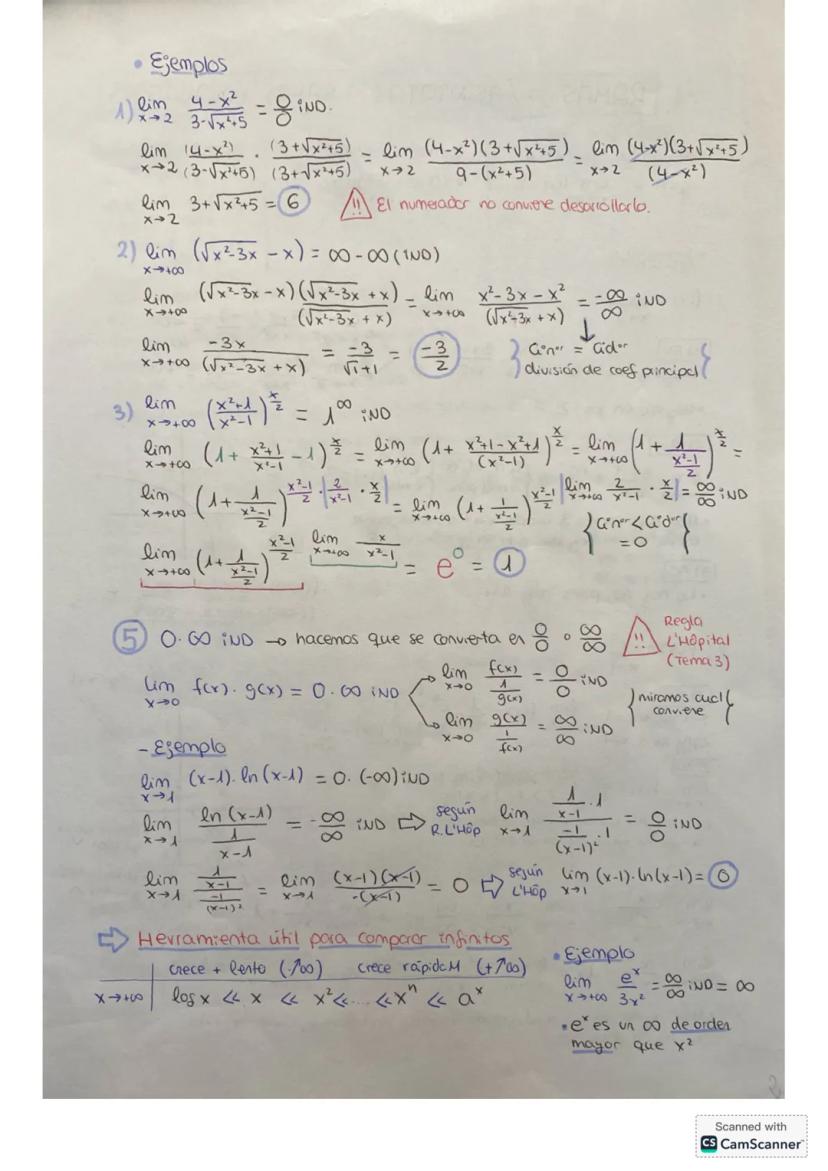 • Ejemplos
1) lim x→2 (4-x²)/(3-√x²+5) = 0/0 iND.
lim x→2 (4-x²)/(3-√x²+5) · (3+√x²+5)/(3+√x²+5) = lim x→2 (4-x²)(3+√x²+5)/(9-(x²+5)) = lim x→2 (4-x²)(3+√x²+5)/(4-x²)
lim x→2 3+√x²+5 = 6 !! El numerador no conviene desarrollarlo.
2) lim x→+∞ (√x²-3x - x) = ∞-∞ (IND)
lim x→+∞ (√x²-3x - x)(√x²-3x + x)/(√x²-3x + x) = lim x→+∞ (x²-3x-x²)/(√x²-3x + x) = -∞/∞ iND
lim x→+∞ -3x/(√x²-3x + x) = -3/(√1+1) = -3/2 } Gºnºʳ = Gºdºʳ división de coef principal {
3) lim x→+∞ ((x²+1)/(x²-1))^(x/2) = 1^∞ iND
lim x→+∞ (1 + (x²+1)/(x²-1) - 1)^(x/2) = lim x→+∞ (1 + (x²+1-x²+1)/(x²-1))^(x/2) = lim x→+∞ (1 + 1/((x²-1)/2))^(x/2) =
lim x→+∞ (1 + 1/((x²-1)/2))^((x²-1)/2 · |2/(x²-1) · x/2|) = lim x→+∞ (1 + 1/((x²-1)/2))^((x²-1)/2 |lim x→+∞ 2/(x²-1) · x/2|) = ∞/∞ iND
} Gºnºʳ < Gºdºʳ = 0 {
lim x→+∞ (1 + 1/((x²-1)/2))^((x²-1)/2 lim x→+∞ x/(x²-1)) = e⁰ = 1
5 0·∞ iND → hacemos que se convierta en 0/0 o ∞/∞ !! Regla L'Hôpital (Tema 3)
lim x→0 f(x)·g(x) = 0·∞ iND
lim x→0 f(x)/(1/g(x)) = 0/0 iND
lim x→0 g(x)/(1/f(x)) = ∞/∞ iND
} miramos cual conviene {
- Ejemplo
lim x→1 (x-1)·ln(x-1) = 0·(-∞) iND
lim x→1 ln(x-1)/(1/(x-1)) = -∞/∞ iND ⇒ según R.L'Hôp lim x→1 (1/(x-1) · 1)/(-1/(x-1)² · 1) = 0/0 iND
lim x→1 (1/(x-1))/(-1/(x-1)²) = lim x→1 (x-1)(x-1)/-(x-1) = 0 ⇒ según L'Hôp lim x→1 (x-1)·ln(x-1) = 0
⇒ Herramienta útil para comparar infinitos
crece + lento (-↑∞) crece rápidoM (+↑∞)
x→+∞ log x << x << x² <<... << xⁿ << aˣ
• Ejemplo
lim x→+∞ eˣ/3x² = ∞/∞ iND = ∞
• eˣ es un ∞ de orden
mayor que x²
2
Scanned with
CS CamScanner